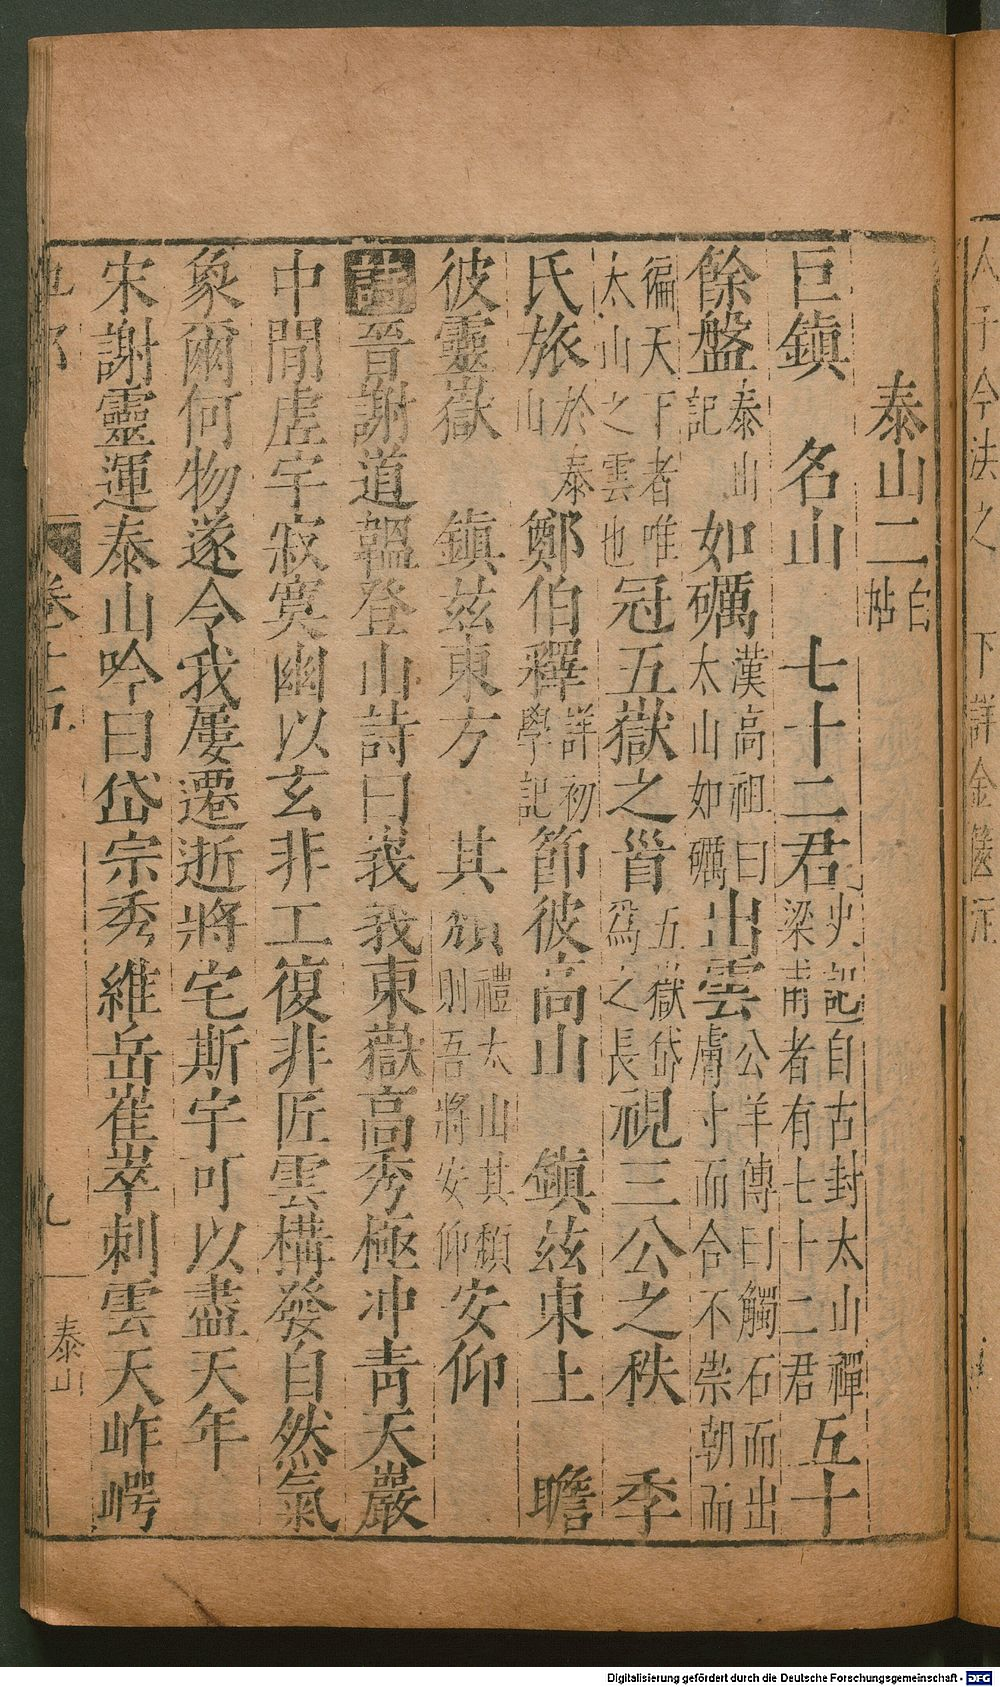 泰山二白帖
巨鎮　名山　七十二君史記自古封太山禪梁甫者有七十二君五十
餘盤泰山記如礪漢高祖曰太山如礪出雲公羊傳曰觸石而出膚寸而合不崇朝而
徧天下者唯太山之雲也冠五嶽之首五嶽岱為之長視三公之秩　季
氏旅於泰山　鄭伯釋詳初學記節彼高山　鎮茲東土　瞻
彼靈嶽　鎮茲東方　其頽禮太山其頽則吾將安仰安仰
詩晉謝道韞登山詩曰峩峩東嶽高秀極沖青天巖
中間虛宇寂寞幽以玄非工復非匠雲構發自然氣
象爾何物遂令我屢遷逝將宅斯宇可以盡天年
宋謝靈運泰山吟曰岱宗秀維岳崔崒刺雲天岞崿
卷十五
九
泰山
人子今法之　下詳金
Digitalisierung gefördert durch die Deutsche Forschungsgemeinschaft - DFG